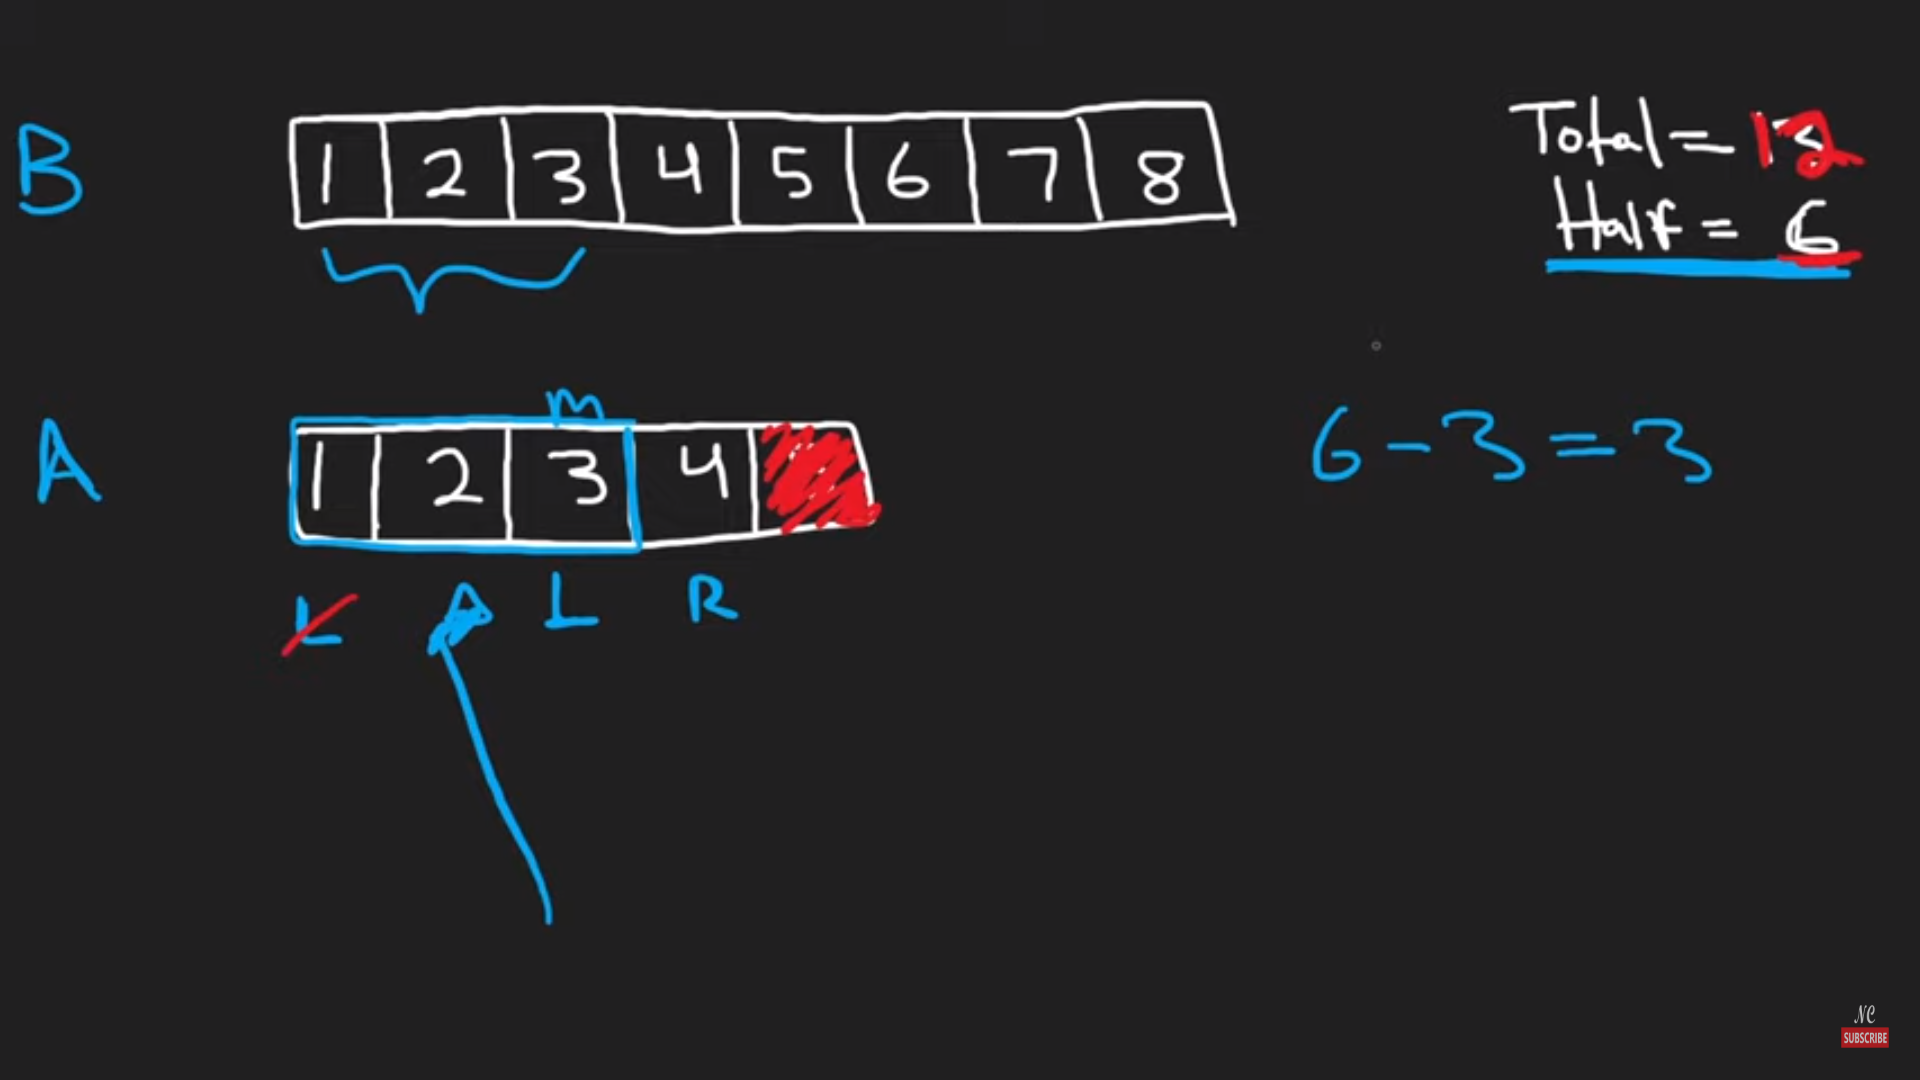 B
1 2 3 4 5 6 7 8
Total = 12
Half = 6
m
A
1 2 3 4
6 - 3 = 3
L
L R
NC
SUBSCRIBE